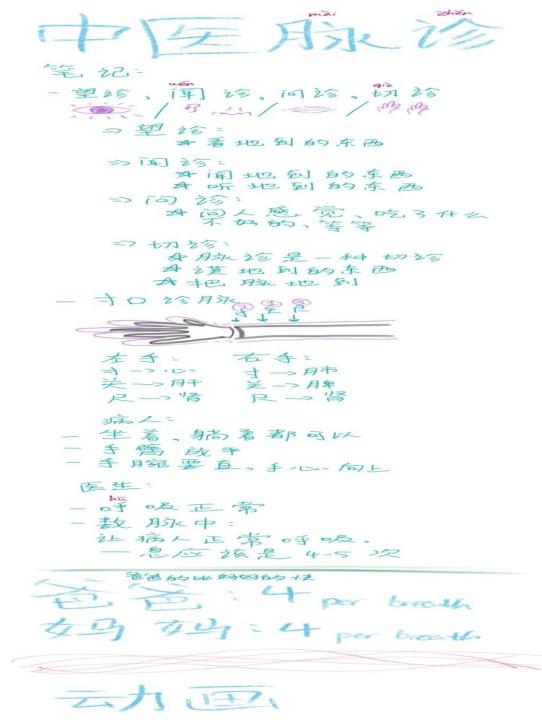 mài zhěn
中医脉诊
笔记:
wén qiè
- 望诊、闻诊、问诊、切诊
⇒ 望诊:
* 看地到的东西
⇒ 闻诊:
* 闻地到的东西
* 听地到的东西
⇒ 问诊:
* 问人感觉、吃了什么
不好的,等等
⇒ 切诊:
* 脉诊是一种切诊
* 摸地到的东西
* 把脉地到
- 寸口诊脉
左手: 右手:
寸→心 寸→肺
关→肝 关→脾
尺→肾 尺→肾
病人:
- 坐着、躺着都可以
- 手臂放平
- 手腕要直、手心向上
医生:
hū
- 呼吸正常
- 数脉中:
让病人正常呼吸。
一息应该是 4-5 次
爸爸的比妈妈的快
爸爸:4 per breath
妈妈:4 per breath
动画